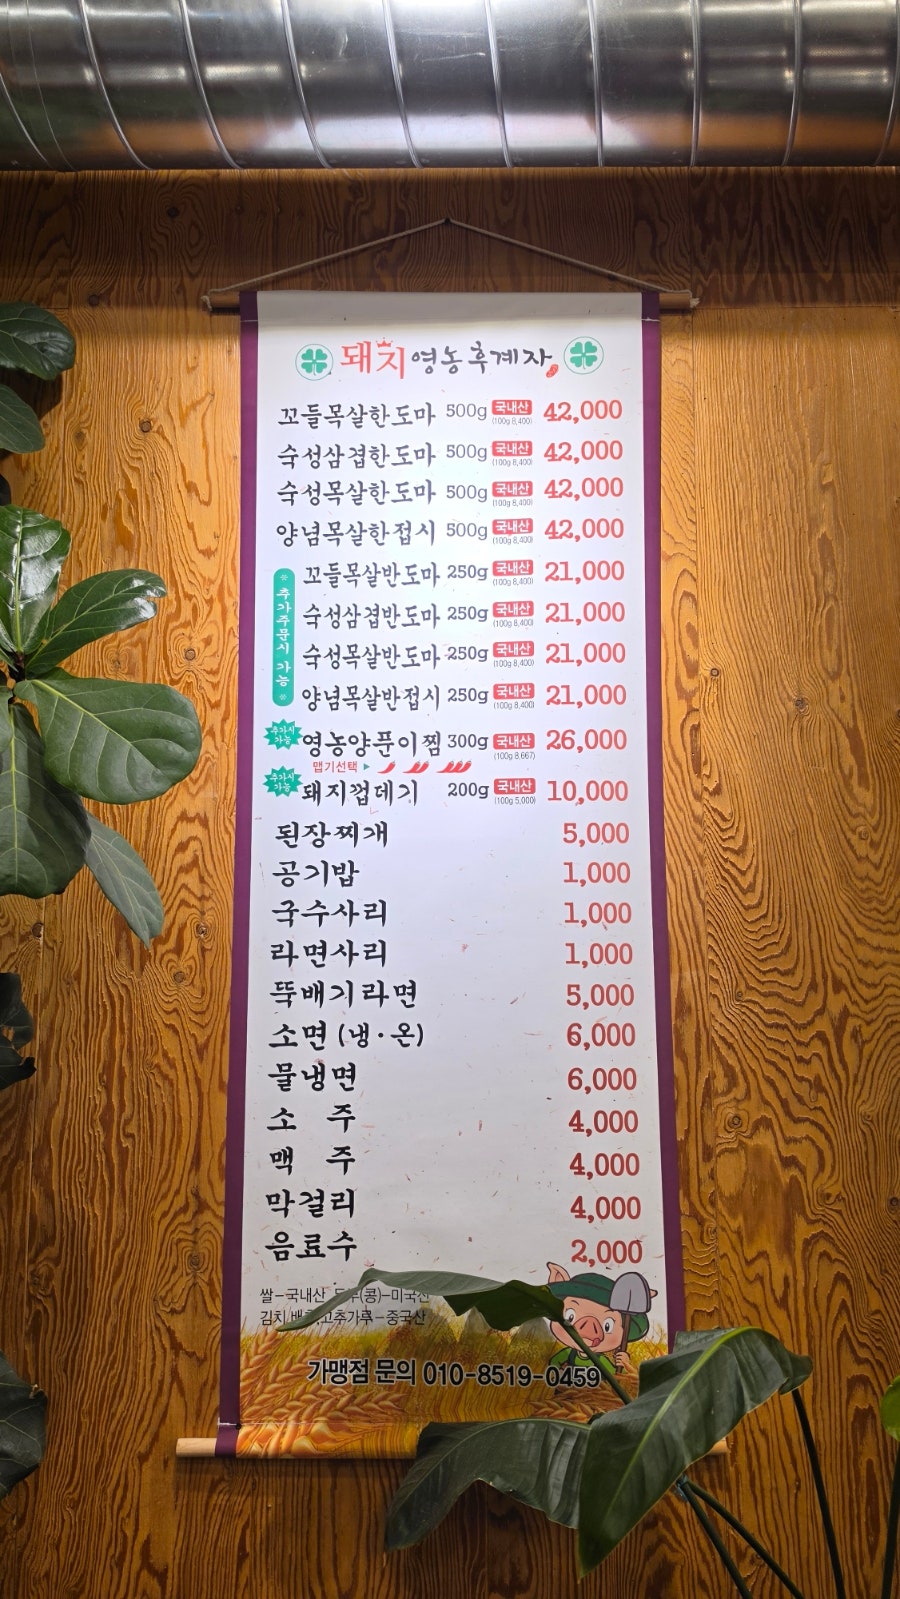 돼지영농후계자
꼬들목살한도마 500g 국내산 (100g 8,400) 42,000
숙성삼겹한도마 500g 국내산 (100g 8,400) 42,000
숙성목살한도마 500g 국내산 (100g 8,400) 42,000
양념목살한접시 500g 국내산 (100g 8,400) 42,000
* 추가주문시 가능 *
꼬들목살반도마 250g 국내산 (100g 8,400) 21,000
숙성삼겹반도마 250g 국내산 (100g 8,400) 21,000
숙성목살반도마 250g 국내산 (100g 8,400) 21,000
양념목살반접시 250g 국내산 (100g 8,400) 21,000
추가시 가능 영농양푼이찜 300g 국내산 (100g 8,667) 26,000
맵기선택 ▶
추가시 가능 돼지껍데기 200g 국내산 (100g 5,000) 10,000
된장찌개 5,000
공기밥 1,000
국수사리 1,000
라면사리 1,000
뚝배기라면 5,000
소면 (냉·온) 6,000
물냉면 6,000
소 주 4,000
맥 주 4,000
막걸리 4,000
음료수 2,000
쌀-국내산 (콩)-미국산
김치 배 고추가루-중국산
가맹점 문의 010-8519-0459